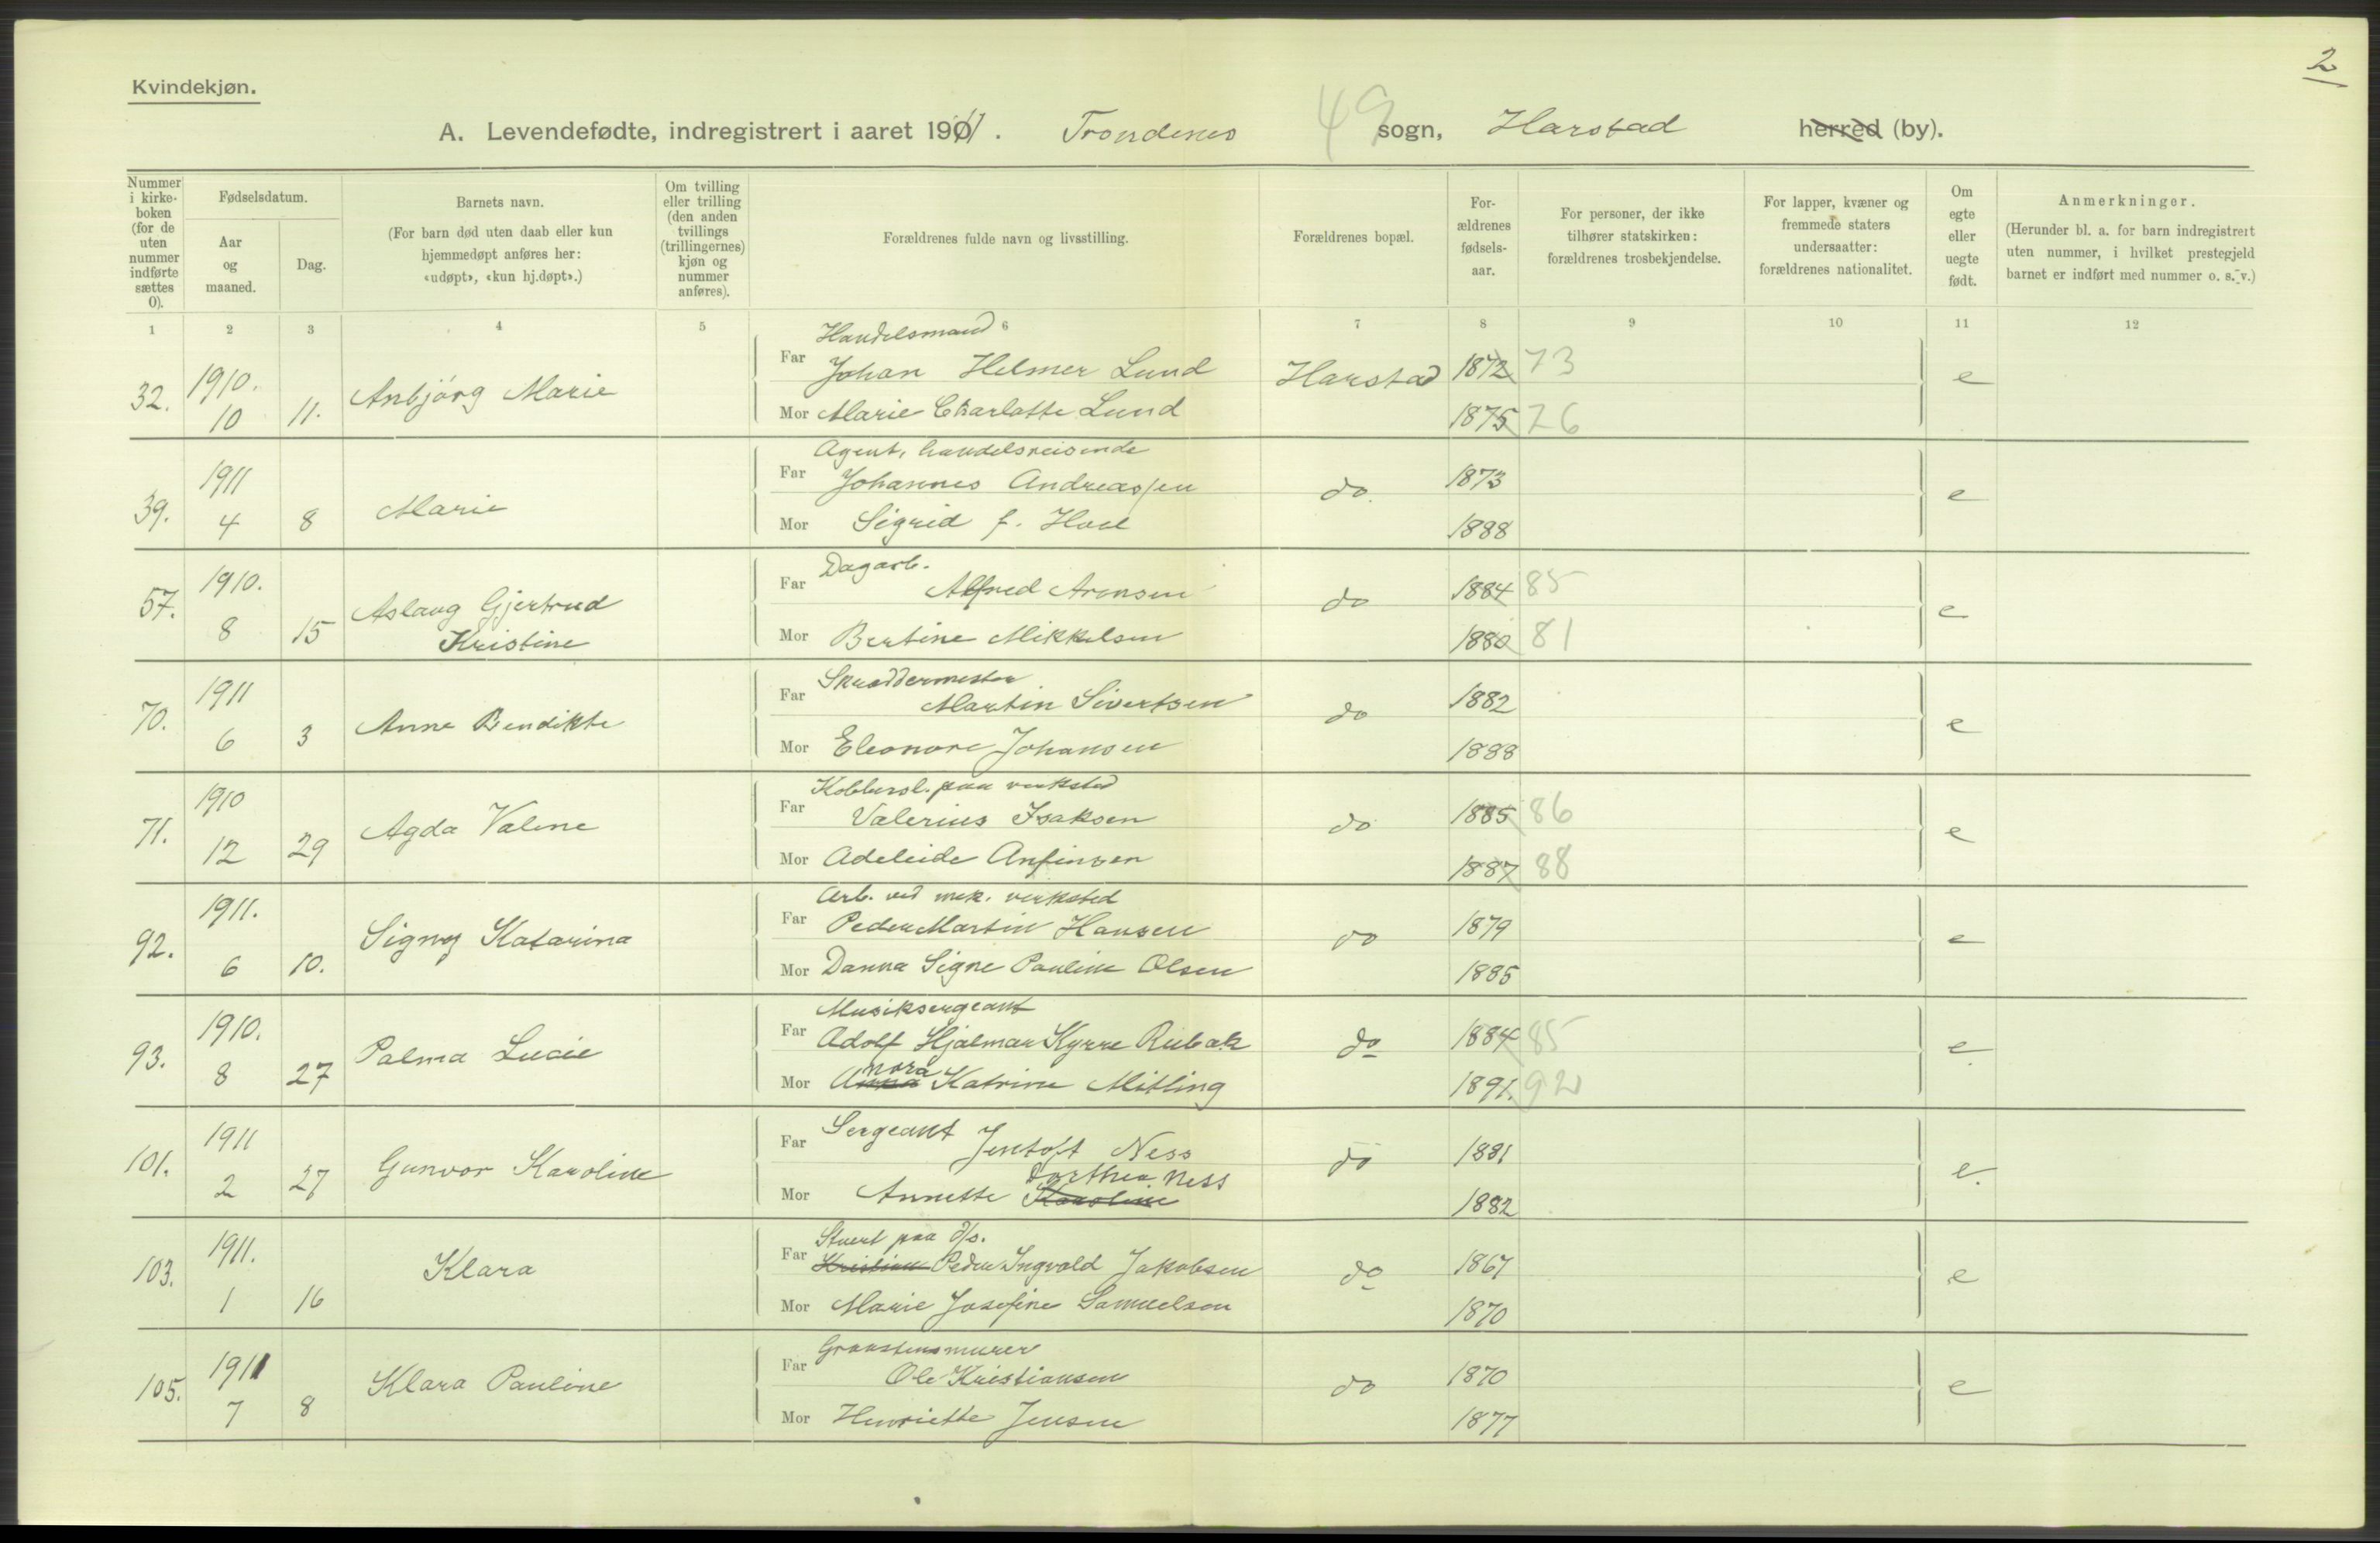 2
Kvindekjøn.
A. Levendefødte, indregistrert i aaret 1911. Trondenes 49 sogn, Harstad herred (by).
Nummer i kirkeboken (for de uten nummer indførte sættes 0).
Fødselsdatum.
Aar og maaned.
Dag.
Barnets navn.
(For barn død uten daab eller kun hjemmedøpt anføres her: «udøpt», «kun hj.døpt».)
Om tvilling eller trilling (den anden tvillings (trillingernes) kjøn og nummer anføres).
Forældrenes fulde navn og livsstilling.
Forældrenes bopæl.
Forældrenes fødselsaar.
For personer, der ikke tilhører statskirken: forældrenes trosbekjendelse.
For lapper, kvæner og fremmede staters undersaatter: forældrenes nationalitet.
Om egte eller uegte født.
Anmerkninger.
(Herunder bl. a. for barn indregistrert uten nummer, i hvilket prestegjeld barnet er indført med nummer o. s. v.)
1 2 3 4 5 6 7 8 9 10 11 12
Handelsmand
32. 1910. 10 11. Anbjörg Marie Far Johan Helmer Lund Harstad 1872 73 e
Mor Marie Charlotte Lund 1875 76
Agent, handelsreisende
39. 1911 4 8 Marie Far Johannes Andreassen do. 1873 e
Mor Sigrid f. Hoel 1888
Dagarb.
57. 1910. 8 15 Aslaug Gjertrud Far Alfred Arensen do 1884 85 e
Kristine Mor Bertine Mikkelsen 1880 81
Skræddermester
70. 1911 6 3 Anna Bendikte Far Martin Sivertsen do 1882 e
Mor Eleonore Johansen 1888
Kobbersl. paa verksted
71. 1910 12 29 Agda Valine Far Valerius Isaksen do 1885 86 e
Mor Adeleide Anfinsen 1887 88
Arb. ved mek. verksted
92. 1911. 6 10. Signy Katarina Far Peder Martin Hansen do 1879 e
Mor Danna Signe Pauline Olsen 1885
Musiksergeant
93. 1910. 8 27 Palma Lucie Far Adolf Hjalmar Kyrre Rubak do 1884 85 e
Mor Anna Nora Katrine Mitling 1891. 92
Sergeant
101. 1911 2 27 Gunvor Karoline Far Jentoft Ness do 1881 e.
Mor Annette Karoline Dorthea Ness 1882
Stuert paa d/s.
103. 1911. 1 16 Klara Far Kristian Peder Ingvald Jakobsen do 1867 e
Mor Marie Josefine Samuelsen 1870
Graastensmurer
105. 1911 7 8 Klara Pauline Far Ole Kristiansen do 1870 e
Mor Henriette Jensen 1877